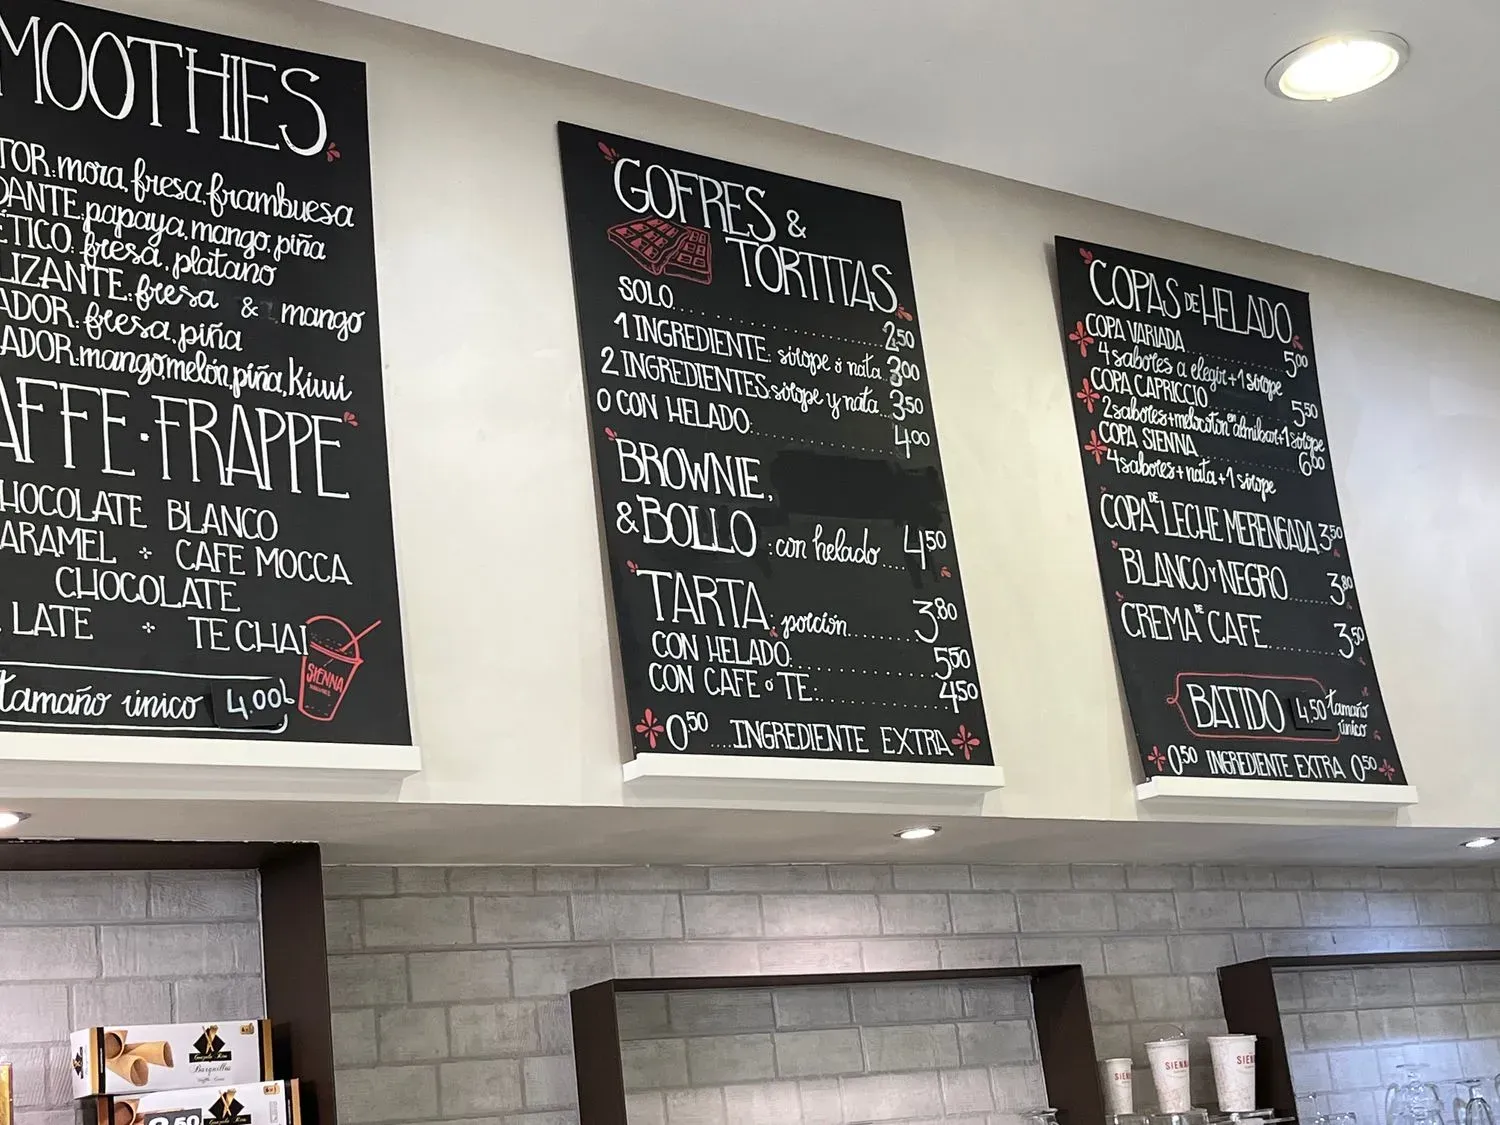 MOOTHIES
TOR: mora, fresa, frambuesa
DANTE: papaya, mango, piña
ÉTICO: fresa, platano
LIZANTE: fresa & mango
ADOR: fresa, piña
ADOR: mango, melón, piña, Kiwi
AFFE·FRAPPE
HOCOLATE BLANCO
ARAMEL CAFE MOCCA
CHOCOLATE
LATE TE CHAI
SIENNA
tamaño único 4.00
GOFRES &
TORTITAS
SOLO.......... 2,50
1 INGREDIENTE: sirope ó nata... 3,00
2 INGREDIENTES: sirope y nata... 3,50
O CON HELADO:.......... 4,00
BROWNIE,
& BOLLO: con helado.... 4,50
TARTA: porción...... 3,80
CON HELADO:.......... 5,50
CON CAFE ó TE:.......... 4,50
0,50 .... INGREDIENTE EXTRA
COPAS DE HELADO
COPA VARIADA.......... 5,00
4 sabores a elegir + 1 sirope
COPA CAPRICCIO.......... 5,50
2 sabores + melocotón en almibar + 1 sirope
COPA SIENNA.......... 6,00
4 sabores + nata + 1 sirope
COPA DE LECHE MERENGADA 3,50
BLANCO Y NEGRO...... 3,80
CREMA DE CAFE...... 3,50
BATIDO 4,50 tamaño único
0,50 INGREDIENTE EXTRA 0,50
Barquillos
SIEN
SIENN
SIEN